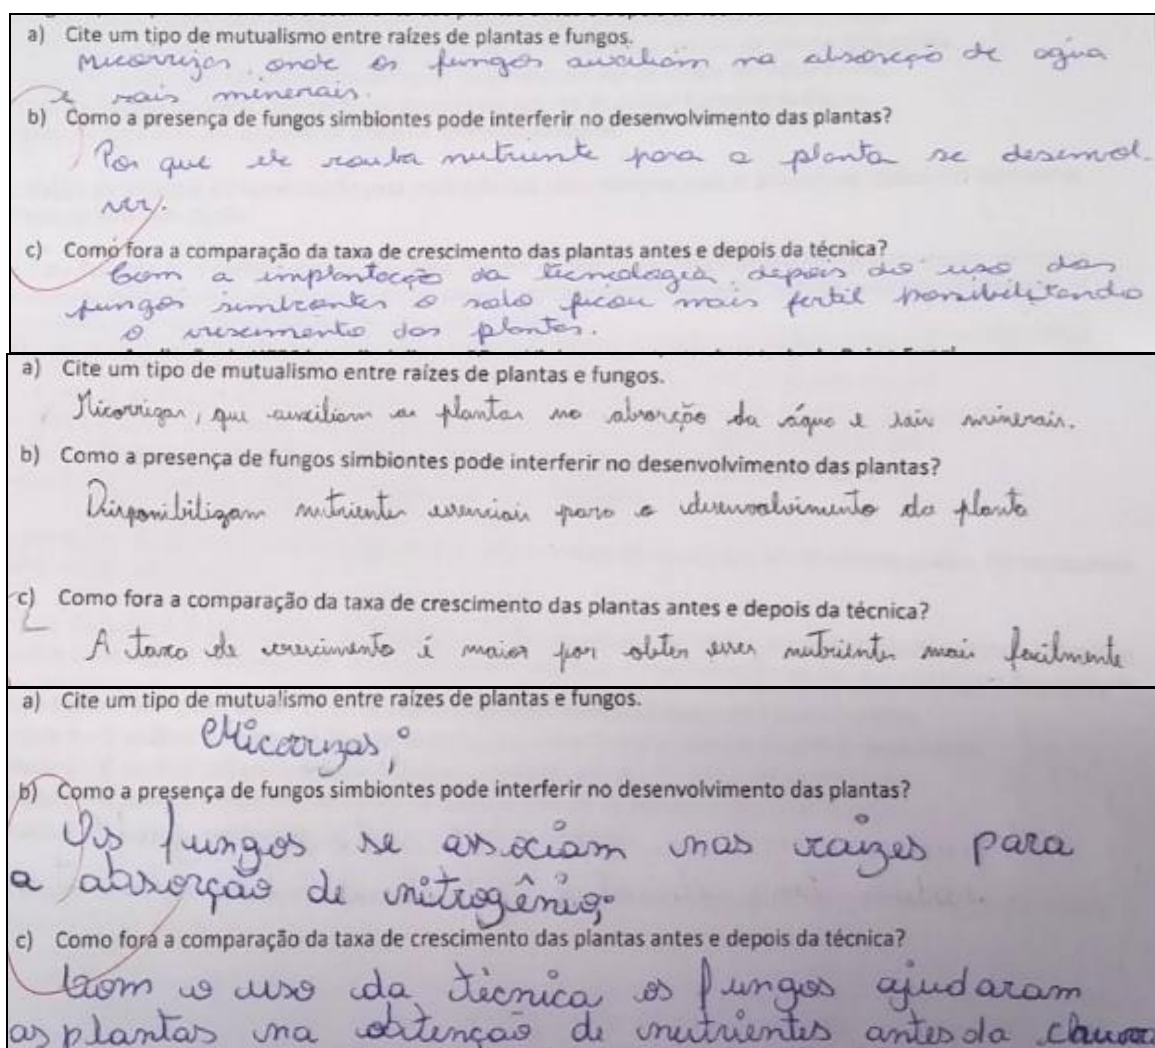 a) Cite um tipo de mutualismo entre raízes de plantas e fungos.
Micorrizas, onde os fungos auxiliam na absorção de água
e sais minerais.
b) Como a presença de fungos simbiontes pode interferir no desenvolvimento das plantas?
Por que ele rouba nutriente para a planta se desenvol-
ver.
c) Como fora a comparação da taxa de crescimento das plantas antes e depois da técnica?
Com a implantação da tecnologia, depois do uso dos
fungos simbiontes o solo ficou mais fertil possibilitando
o crescimento das plantas.
a) Cite um tipo de mutualismo entre raízes de plantas e fungos.
Micorrizas, que auxiliam as plantas na absorção da água e sais minerais.
b) Como a presença de fungos simbiontes pode interferir no desenvolvimento das plantas?
Disponibilizam nutrientes essenciais para o desenvolvimento da planta
c) Como fora a comparação da taxa de crescimento das plantas antes e depois da técnica?
A taxa de crescimento é maior por obter esses nutrientes mais facilmente
a) Cite um tipo de mutualismo entre raízes de plantas e fungos.
Micorrizas;
b) Como a presença de fungos simbiontes pode interferir no desenvolvimento das plantas?
Os fungos se associam nas raízes para
a absorção de nitrogênio;
c) Como fora a comparação da taxa de crescimento das plantas antes e depois da técnica?
Com o uso da técnica os fungos ajudaram
as plantas na obtenção de nutrientes antes da